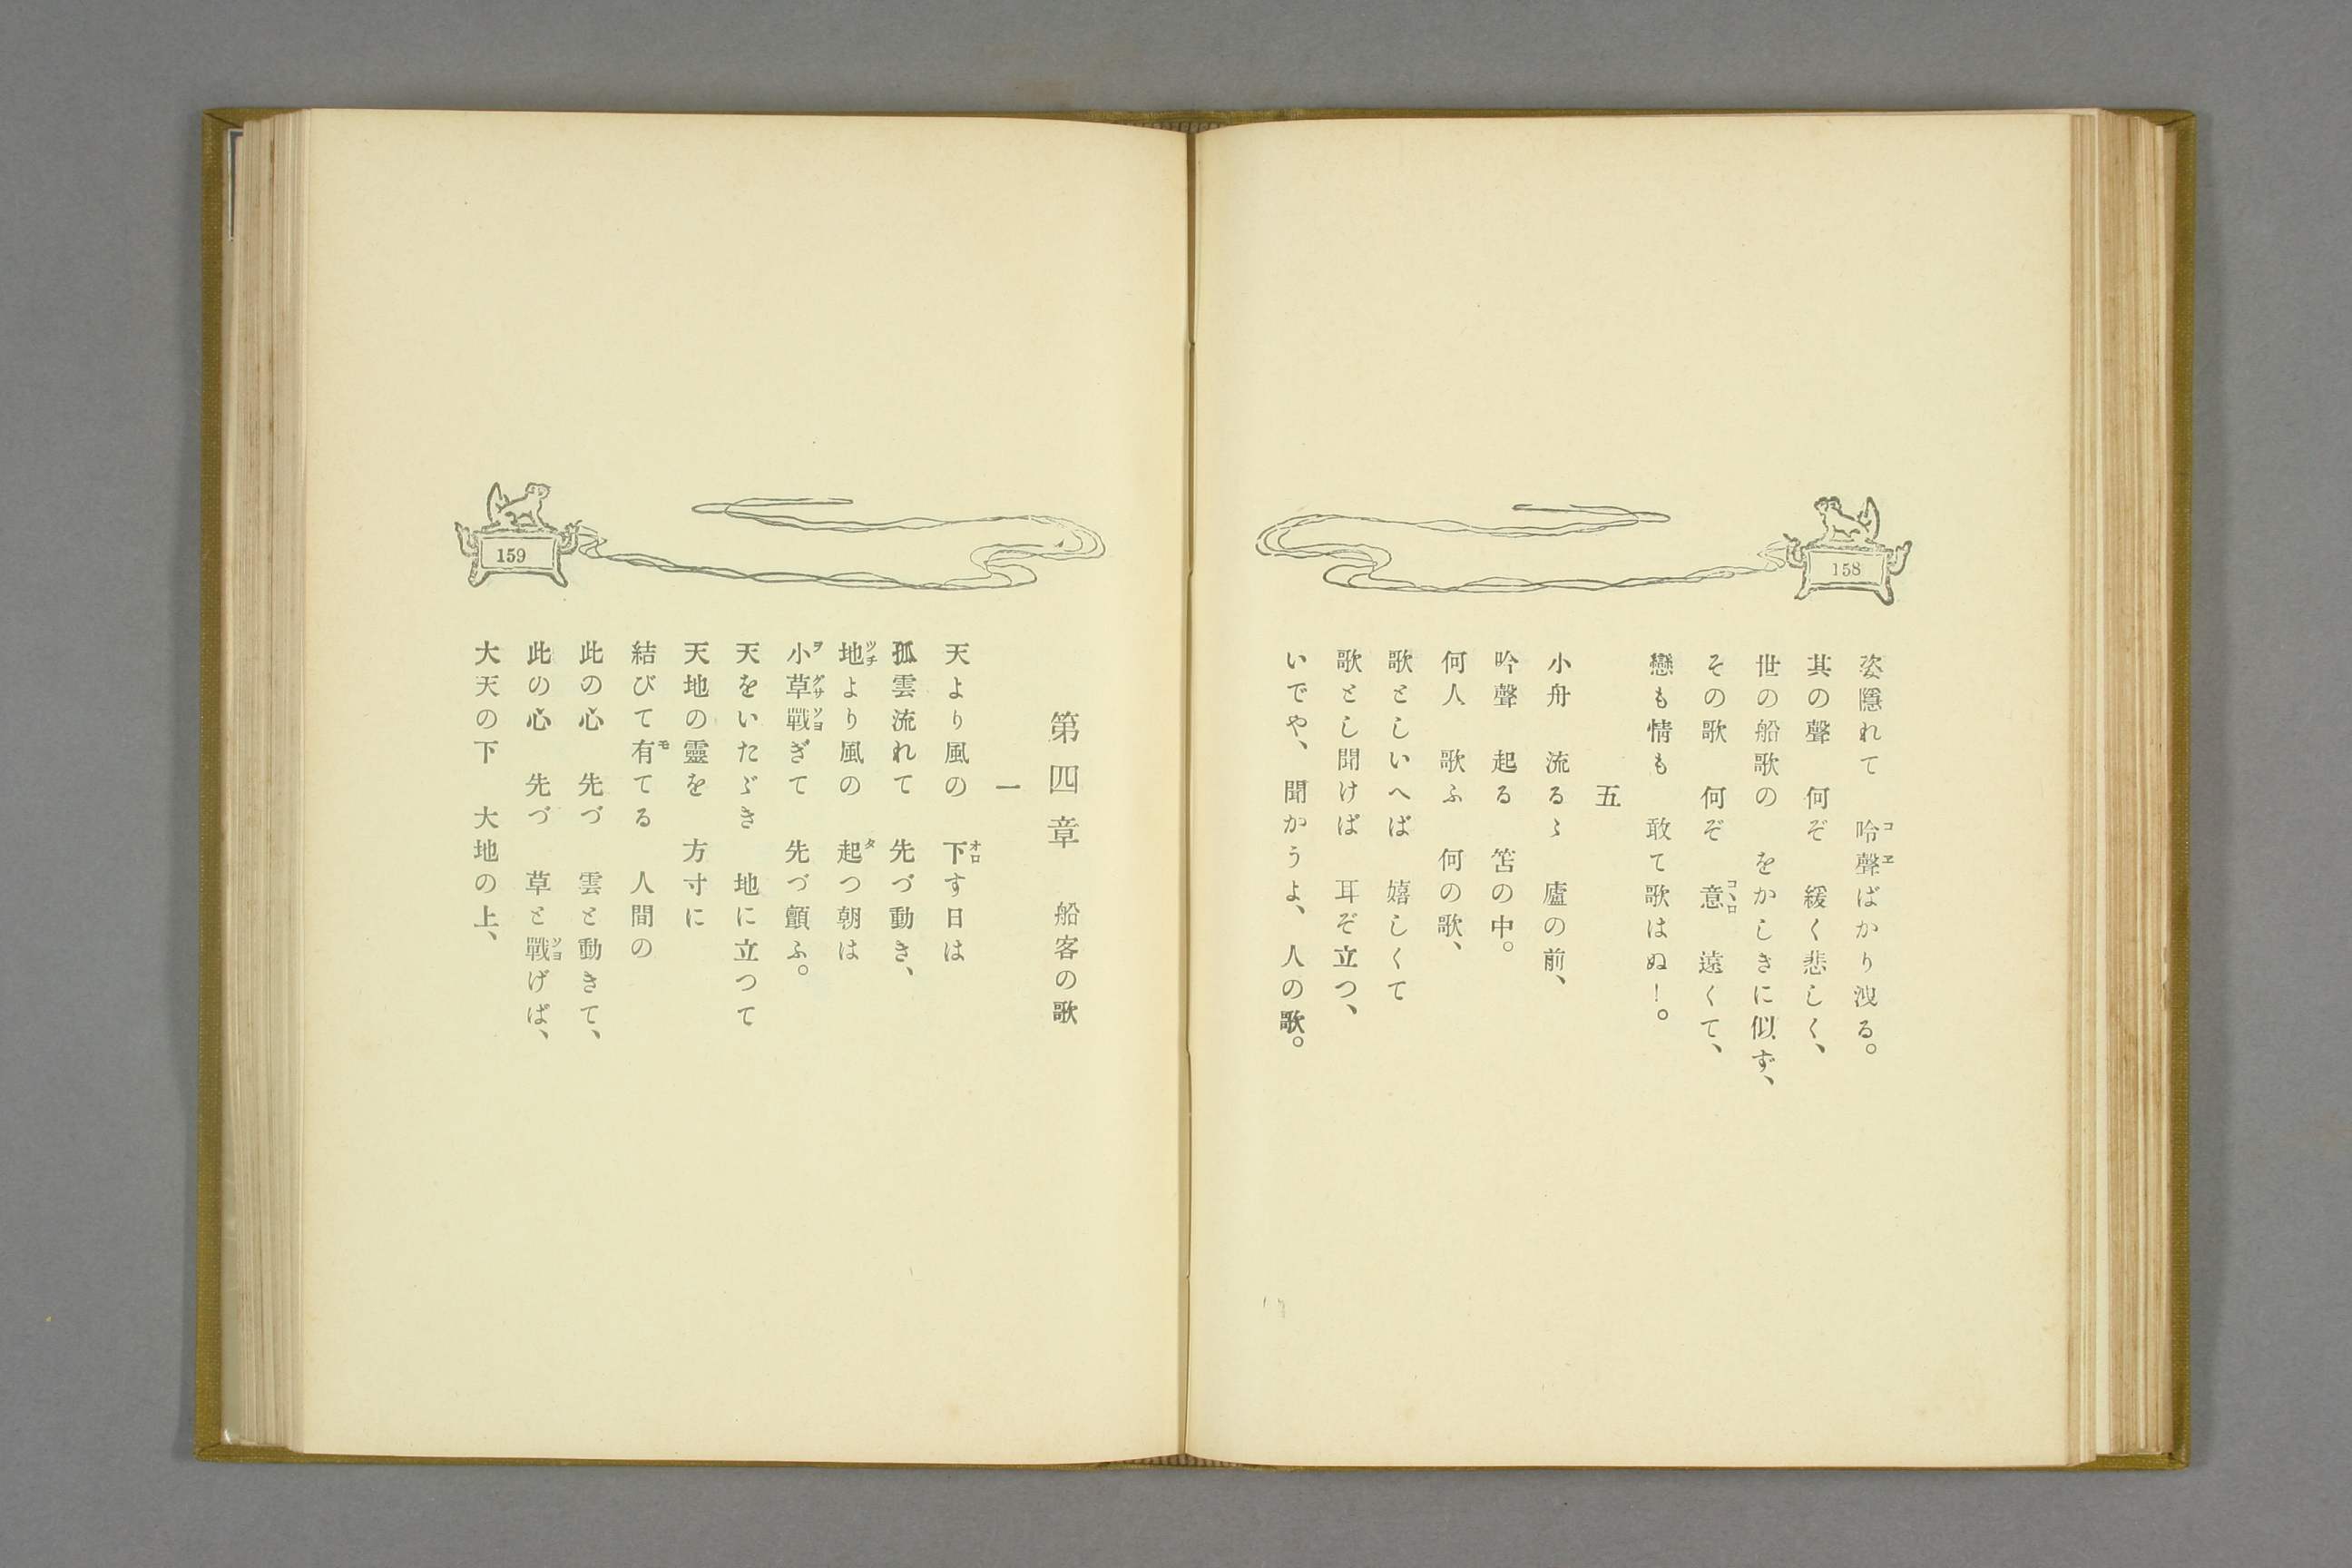 158
姿隱れて　呤聲ばかり洩る。
其の聲　何ぞ　緩く悲しく、
世の船歌の　をかしきに似ず、
その歌　何ぞ　意　遠くて、
戀も情も　敢て歌はぬ！。
五
小舟　流るゝ　廬の前、
吟聲　起る　笘の中。
何人　歌ふ　何の歌、
歌としいへば　嬉しくて
歌とし聞けば　耳ぞ立つ、
いでや、聞かうよ、人の歌。
159
第四章　船客の歌
一
天より風の　下す日は
孤雲流れて　先づ動き、
地より風の　起つ朝は
小草戰ぎて　先づ顫ふ。
天をいたゞき　地に立つて
天地の靈を　方寸に
結びて有てる　人間の
此の心　先づ　雲と動きて、
此の心　先づ　草と戰げば、
大天の下　大地の上、